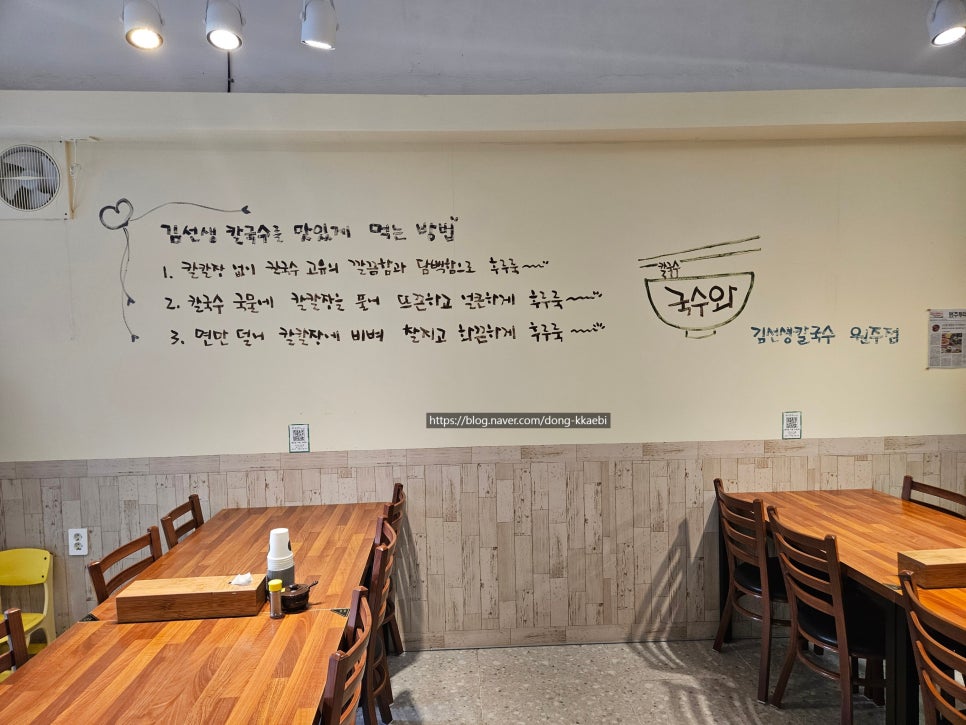 김선생 칼국수를 맛있게 먹는 방법
1. 칼칼장 없이 칼국수 고유의 깔끔함과 담백함으로 후루룩~
2. 칼국수 국물에 칼칼장을 풀어 뜨끈하고 얼큰하게 후루룩~
3. 면만 덜어 칼칼장에 비벼 찰지고 화끈하게 후루룩~
칼국수
국수와
김선생칼국수 원주점
https://blog.naver.com/dong-kkaebi